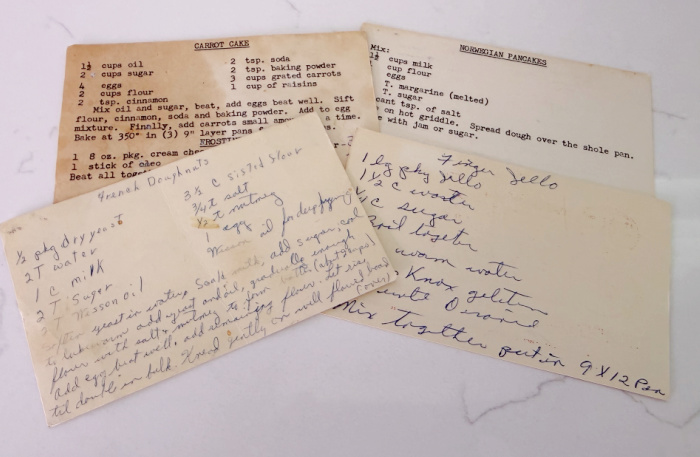 CARROT CAKE
1½ cups oil
2 cups sugar
4 eggs
2 cups flour
2 tsp. cinnamon
2 tsp. soda
2 tsp. baking powder
3 cups grated carrots
1 cup of raisins
Mix oil and sugar, beat, add eggs beat well. Sift
flour, cinnamon, soda and baking powder. Add to egg
mixture. Finnlly, add carrots small a time.
Bake at 350° in (3) 9" layer pans
FROSTI
1 8 oz. pkg. cream che
1 stick of oleo
Beat all toge
NORWEGIAN PANCAKES
Mix:
1½ cups milk
cup flour
eggs
T. margarine (melted)
T. sugar
cant tsp. of salt
on hot griddle. Spread dough over the whole pan.
with jam or sugar.
French Doughnuts
½ pkg dry yeast
2 T water
1 C milk
2 T Sugar
2 T Wesson oil
3½ C Sifted flour
¾ t salt
½ t nutmeg
1 egg
Wesson oil for deep frying
yeast in water, Scald milk, add sugar, cool
to lukewarm add yeast and oil, gradually enough
flour with salt, nutmeg to form
add egg, beat well, add remaining flour. Let rise
til double in bulk. Knead gently on well flowered board
(over)
Finger Jello
1 lg pkg Jello
1 ½ C water
C sugar
Boil together
warm water
Knox gelatine
Desired
Mix together put in 9 X 12 Pan